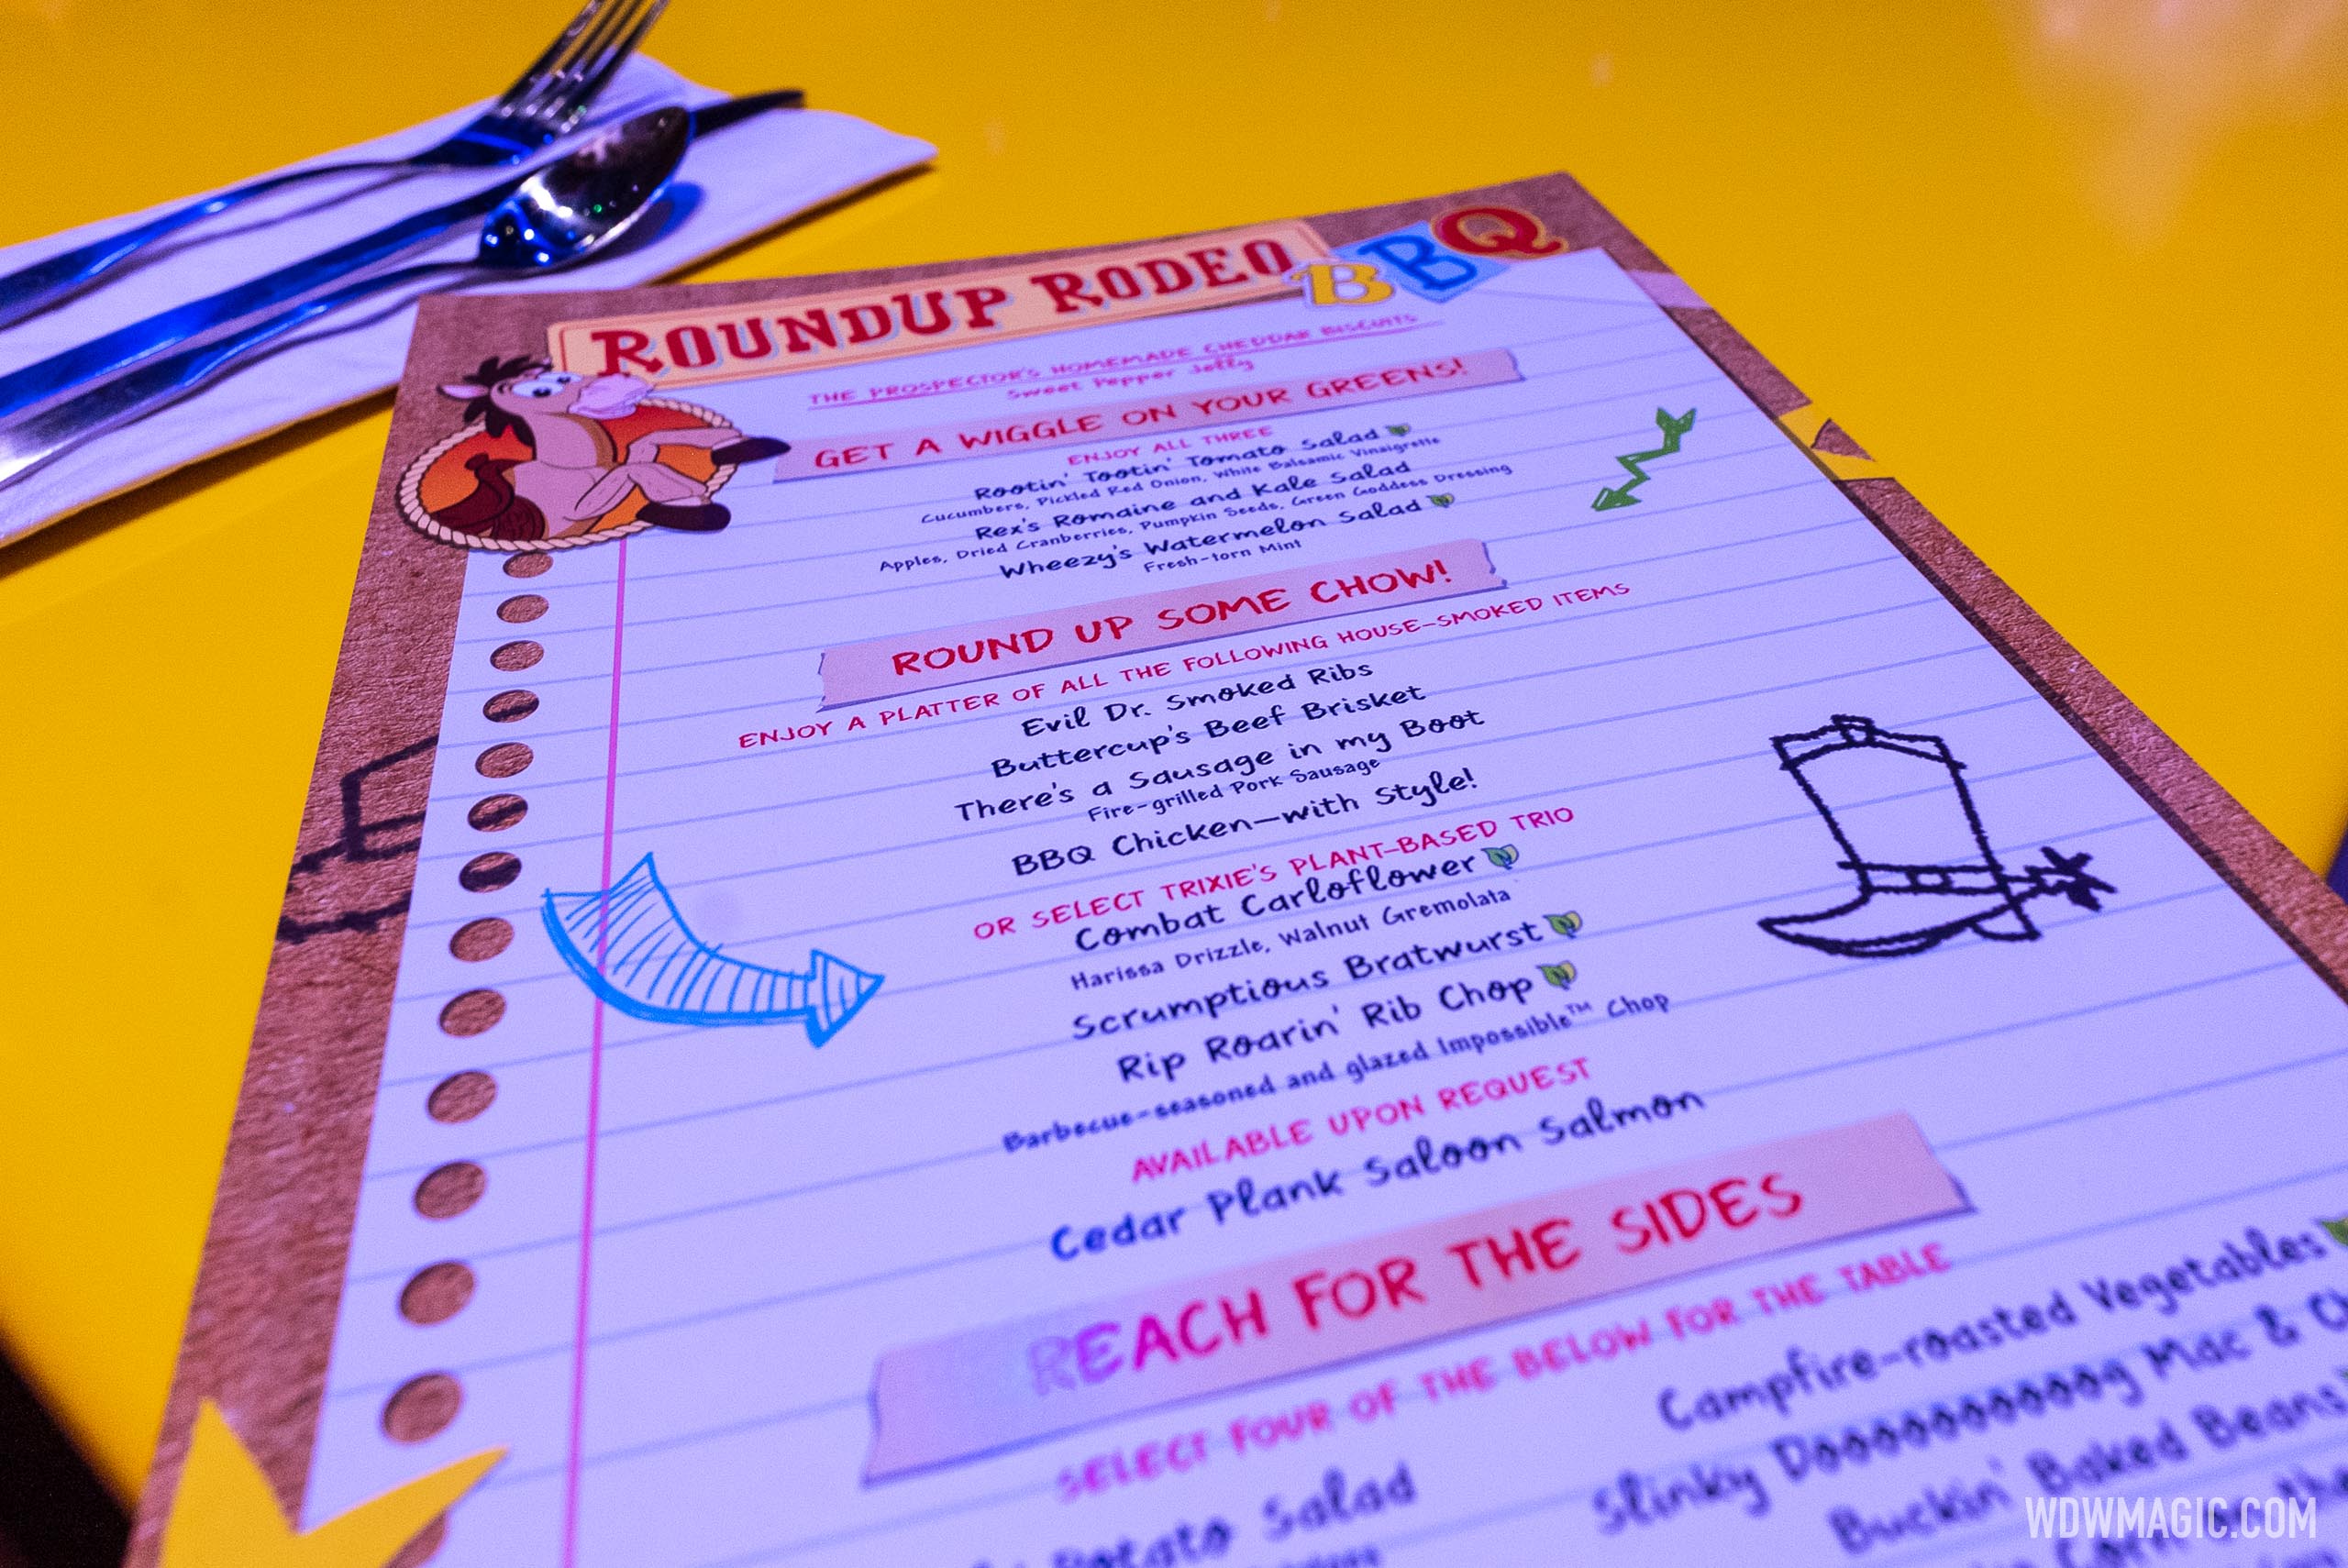 ROUNDUP RODEO BBQ
THE PROSPECTOR'S HOMEMADE CHEDDAR BISCUITS
Sweet Pepper Jelly
GET A WIGGLE ON YOUR GREENS!
ENJOY ALL THREE
Rootin' Tootin' Tomato Salad
Cucumbers, Pickled Red Onion, White Balsamic Vinaigrette
Rex's Romaine and Kale Salad
Apples, Dried Cranberries, Pumpkin Seeds, Green Goddess Dressing
Wheezy's Watermelon Salad
Fresh-torn Mint
ROUND UP SOME CHOW!
ENJOY A PLATTER OF ALL THE FOLLOWING HOUSE-SMOKED ITEMS
Evil Dr. Smoked Ribs
Buttercup's Beef Brisket
There's a Sausage in my Boot
Fire-grilled Pork Sausage
BBQ Chicken—with Style!
OR SELECT TRIXIE'S PLANT-BASED TRIO
Combat Carloflower
Harissa Drizzle, Walnut Gremolata
Scrumptious Bratwurst
Rip Roarin' Rib Chop
Barbecue-seasoned and glazed Impossible™ Chop
AVAILABLE UPON REQUEST
Cedar Plank Saloon Salmon
REACH FOR THE SIDES
SELECT FOUR OF THE BELOW FOR THE TABLE
Campfire-roasted Vegetables
Slinky Doooooooooog Mac &
Potato Salad
Buckin' Baked Beans
Corn
WDWMAGIC.COM